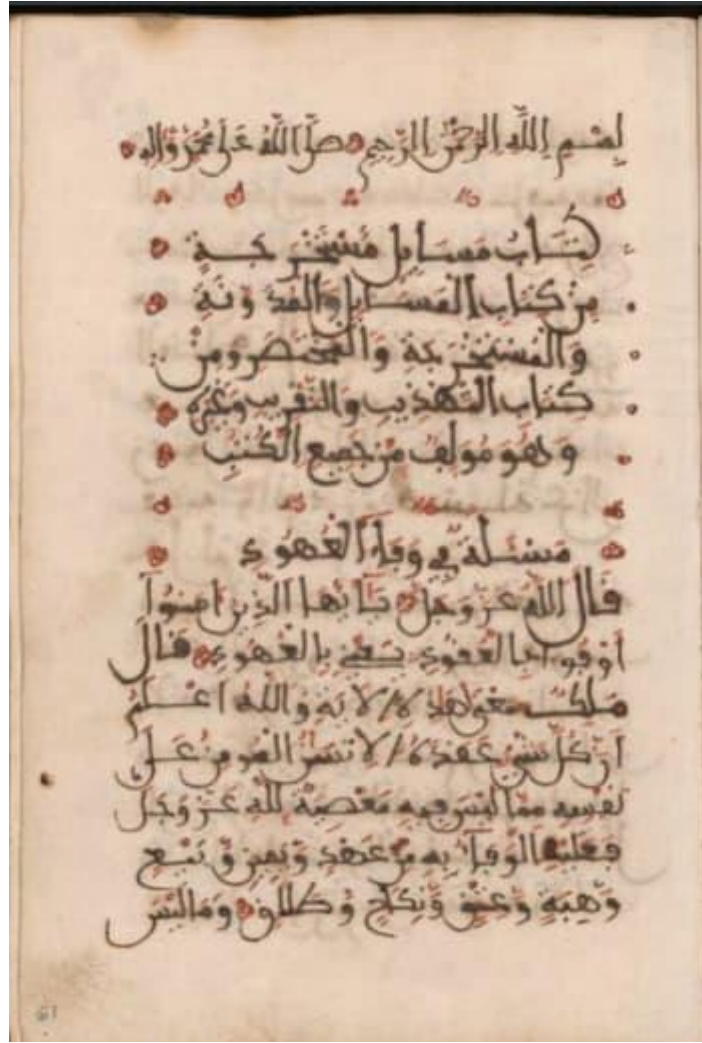 بِسْمِ اللَّهِ الرَّحْمٰنِ الرَّحِيمِ صَلَّى اللَّهُ عَلَى مُحَمَّدٍ وَآلِهِ
كِتَابُ مَسَايِلَ مُسْتَخْرَجَةٍ
مِنْ كِتَابِ الْمَسَايِلِ وَالْمُدَوَّنَةِ
وَالْمُسْتَخْرَجَةِ وَالْمُخْتَصَرِ وَمِنْ
كِتَابِ التَّهْذِيبِ وَالتَّفْرِيعِ وَغَيْرِهِ
وَهُوَ مُوَلَّفٌ مِنْ جَمِيعِ الْكُتُبِ
مَسْئَلَةٌ فِي وَفَاءِ الْعُهُودِ
قَالَ اللَّهُ عَزَّ وَجَلَّ يَا أَيُّهَا الَّذِينَ آمَنُوا
أَوْفُوا بِالْعُقُودِ يَعْنِي بِالْعُهُودِ قَالَ
مَلِكٌ مَعْنَى هَذِهِ الْآيَةِ وَاللَّهُ أَعْلَمُ
أَنَّ كُلَّ شَيْءٍ عَقَدَهُ الْمُؤْمِنُ عَلَى
نَفْسِهِ مِمَّا لَيْسَ فِيهِ مَعْصِيَةٌ لِلَّهِ عَزَّ وَجَلَّ
فَعَلَيْهِ الْوَفَاءُ بِهِ مِنْ عَهْدٍ وَيَمِينٍ وَبَيْعٍ
وَهِبَةٍ وَعِتْقٍ وَنِكَاحٍ وَطَلَاقٍ وَمَا لَيْسَ
61